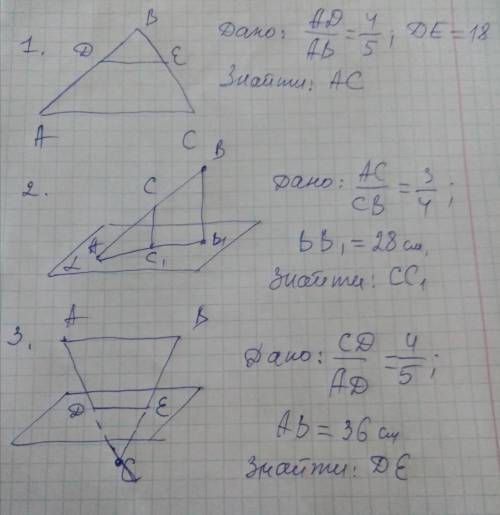 1.
B
D
E
A
C
Дано: AD/AB = 4/5; DE = 18
Знайти: AC
2.
B
C
A
C₁
B₁
α
Дано: AC/CB = 3/4;
BB₁ = 28 см,
Знайти: CC₁
3.
A
B
D
E
C
Дано: CD/AD = 4/5;
AB = 36 см
Знайти: DE